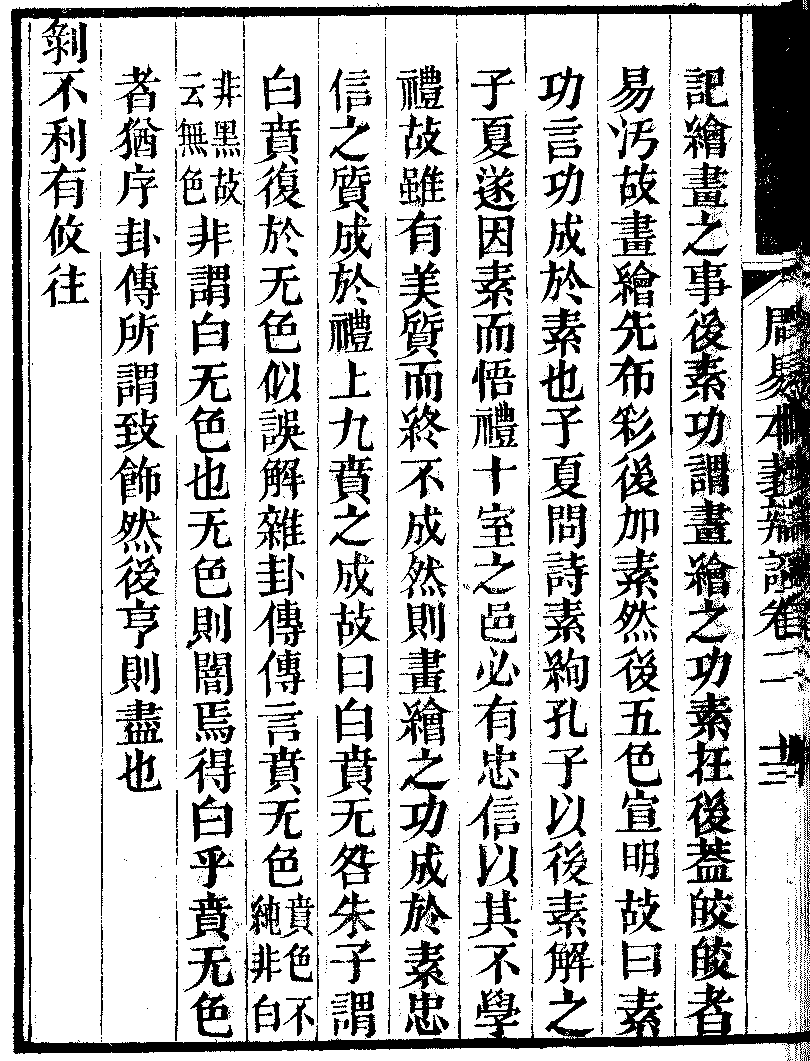 周易本義辯證卷二
記繪畫之事後素功謂畫繪之功素在後葢皎皎者
易汚故畫繪先布彩後加素然後五色宣明故曰素
功言功成於素也子夏問詩素絢孔子以後素解之
子夏遂因素而悟禮十室之邑必有忠信以其不學
禮故雖有美質而終不成然則畫繪之功成於素忠
信之質成於禮上九賁之成故曰白賁无咎朱子謂
白賁復於无色似誤解雜卦傳傳言賁无色賁色不純非白
非黑故云無色非謂白无色也无色則闇焉得白乎賁无色
者猶序卦傳所謂致飾然後亨則盡也
剝不利有攸往